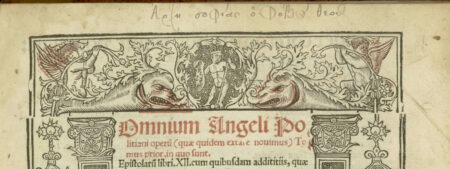 Omnium Angeli Po
litiani operũ (quæ quidem extare novimus) To
mus prior, in quo sunt.
Epistolarũ libri.XII.cum quibusdam additiis, quæ